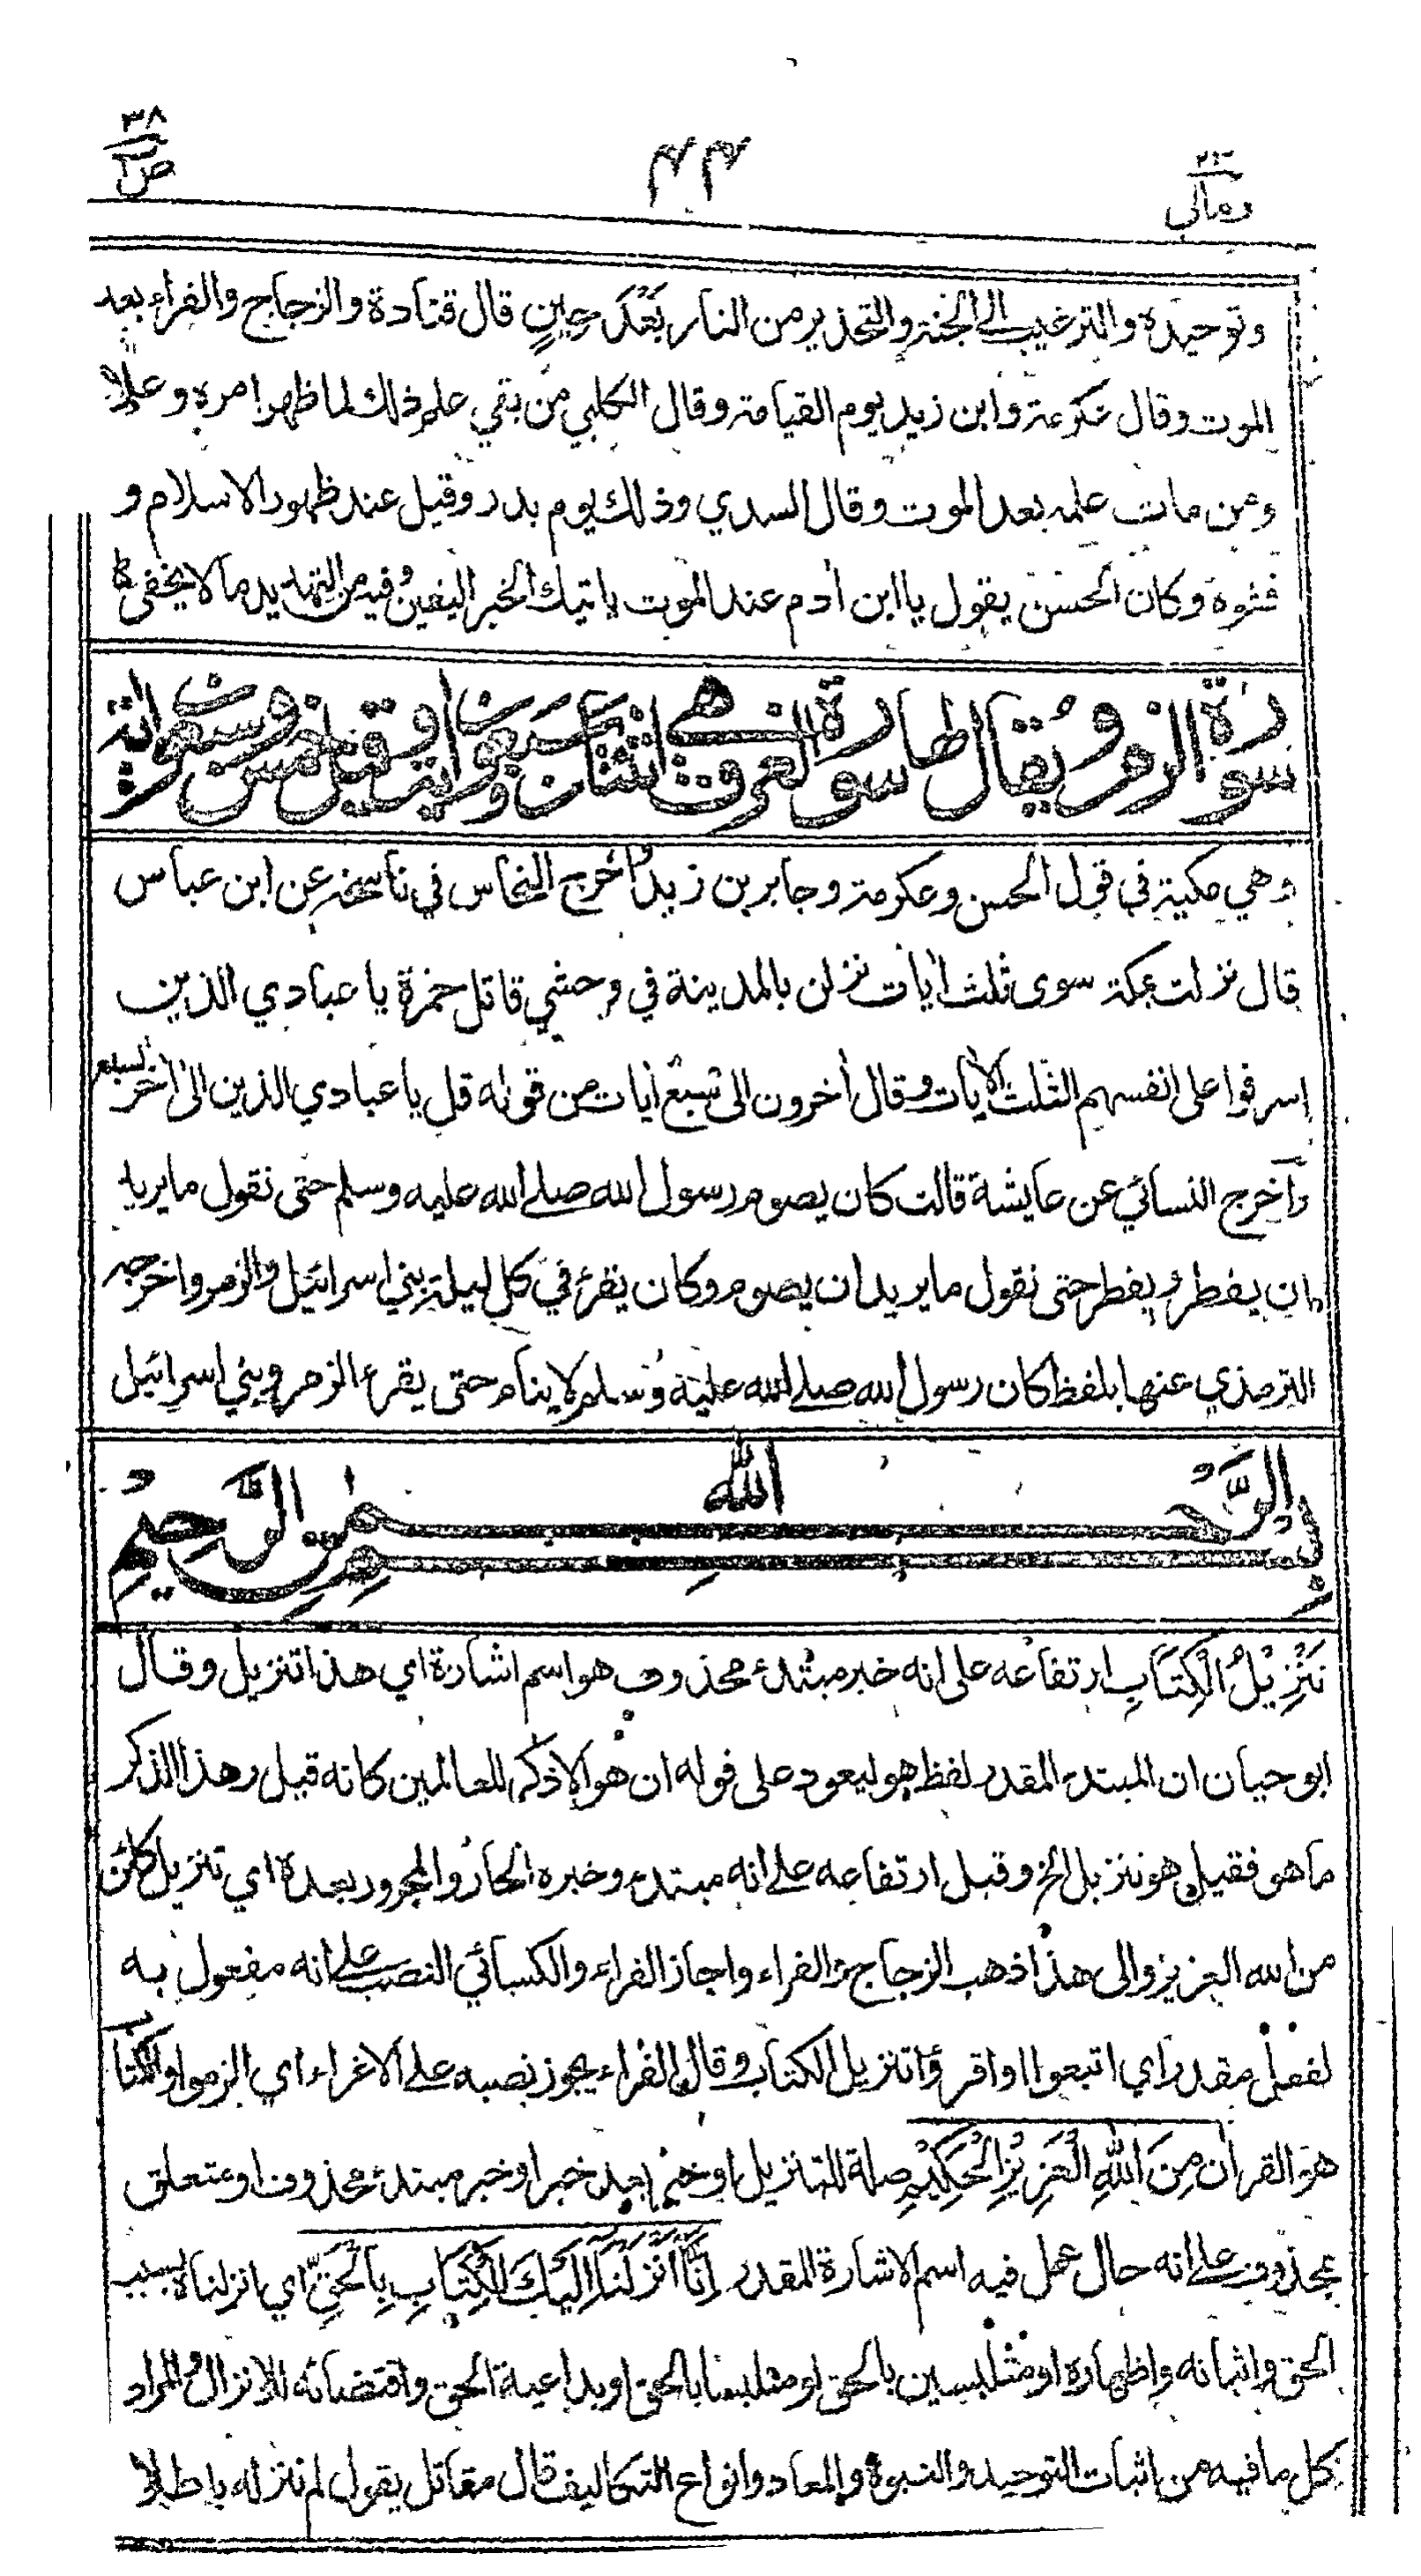 ٣٨
ص
٤٤
٢٣
ومالي
وتوحيده والترغيب الى الجنة والتحذير من النار بَعْدَ حِينٍ قال قتادة والزجاج والفراء بعد
الموت وقال عكرمة وابن زيد يوم القيامة وقال الكلبي من بقي علم ذلك لما ظهر امره وعلا
ومن مات علمه بعد الموت وقال السدي وذلك يوم بدر وقيل عند ظهور الاسلام و
فشوه وكان الحسن يقول يا ابن أدم عند الموت ياتيك الخبر اليقين وفيه من التهديد ما لا يخفى
سورة الزمر ويقال لها سورة الغرف هي اثنتان وسبعون اية وقيل خمس وسبعون اية
وهي مكية في قول الحسن وعكرمة وجابر بن زيد واخرج النحاس في ناسخه عن ابن عباس
قال نزلت بمكة سوى ثلث أيات نزلن بالمدينة في وحشي قاتل حمزة يا عبادي الذين
اسرفوا على انفسهم الثلث الأيات وقال أخرون الى سبع أيات من قوله قل يا عبادي الذين الى أخر السبع
وأخرج النسائي عن عايشة قالت كان يصوم رسول الله صلى الله عليه وسلم حتى نقول ما يريد
ان يفطر ويفطر حتى نقول ما يريد ان يصوم وكان يقرء في كل ليلة بني اسرائيل والزمر واخرجه
الترمذي عنها بلفظ كان رسول الله صلى الله عليه وسلم لا ينام حتى يقرء الزمر وبني اسرائيل
بسم الله الرحمن الرحيم
تَنْزِيْلُ الْكِتَابِ ارتفاعه على انه خبر مبتدء محذوف هو اسم اشارة اي هذا تنزيل وقال
ابو حيان ان المبتدء المقدر لفظ هو ليعود على قوله ان هو الا ذكر للعالمين كانه قيل وهذا الذكر
ما هو فقيل هو تنزيل الخ وقيل ارتفاعه على انه مبتدء وخبره الجار والمجرور بعده اي تنزيل كائن
من الله العزيز والى هذا ذهب الزجاج والفراء واجاز الفراء والكسائي النصب على انه مفعول به
لفعل مقدر اي اتبعوا او اقرؤا تنزيل الكتاب وقال الفراء يجوز نصبه على الاغراء اي الزموا والكتاب
هو القران مِنَ اللّٰهِ الْعَزِيْزِ الْحَكِيْمِ صلة للتنزيل او خبر بعد خبر او خبر مبتدء محذوف او متعلق
بمحذوف على انه حال عمل فيه اسم الاشارة المقدر اِنَّا اَنْزَلْنَا اِلَيْكَ الْكِتَابَ بِالْحَقِّ اي انزلناه بسبب
الحق واثباته واظهاره او متلبسين بالحق او متلبسا بالحق او بداعية الحق واقتضائه للانزال والمراد
كل ما فيه من اثبات التوحيد والنبوة والمعاد وانواع التكاليف قال مقاتل يقول لم ننزله باطلا